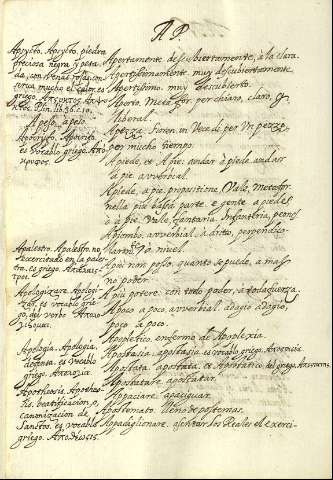 AP
Apertamente descubiertamente, à la clara.
Apertissimamente muy descubiertamente.
Apertissimo muy descubierto.
Aperto, Metafor. per chiaro, claro,
liberal.
Apezza, Fioren. in vece di per un pezzo
per mucho tiempo.
Apiede, et Apie: andar à piede andar
à pie avverbial.
Apiede, a pie, propositione, Valle, Metafor.
nella più bassa parte, e gente a piedi
ò à piè. Valle, fantaria Infanteria, peones
Apiombo, avverbial, à dritto, perpendico-
larmte à nivel.
Apiù non posso, quanto se puede, a mas
no poder.
A più potere con todo poder, a toda fuerza
Apoco a poco, avverbial, adagio adagio,
poco à poco.
Apopletico enfermo de Apoplexia.
Apostasia, apostasia, es vocablo griego.
Apostata, apostata, et Apostatico del griego.
Apostatare apostatar.
Appaciare, apaciguar.
Apostemato, lleno de postemas.
Appadiglionare, assentar los Reales el exerci-
Apsycto, Apsycto, piedra
preciosa negra, y pesa
da, con venas rojas, con
serva mucho el calor, es
griego.
Plin. lib 36. c. 10.
A peso, a peso.
Apocrypho, Apocripho
es vocablo griego
Apalestro, Apalestro, no
exercitado en la pales-
tra, es griego
Apologizare, Apologi-
zar, es vocablo grie-
go, del verbo
Apologia, Apologia,
defensa, es vocablo
griego,
Apotheosis, Apotheo-
sis, beatificacion, o,
canonizacion de
Santos, es vocablo
griego.